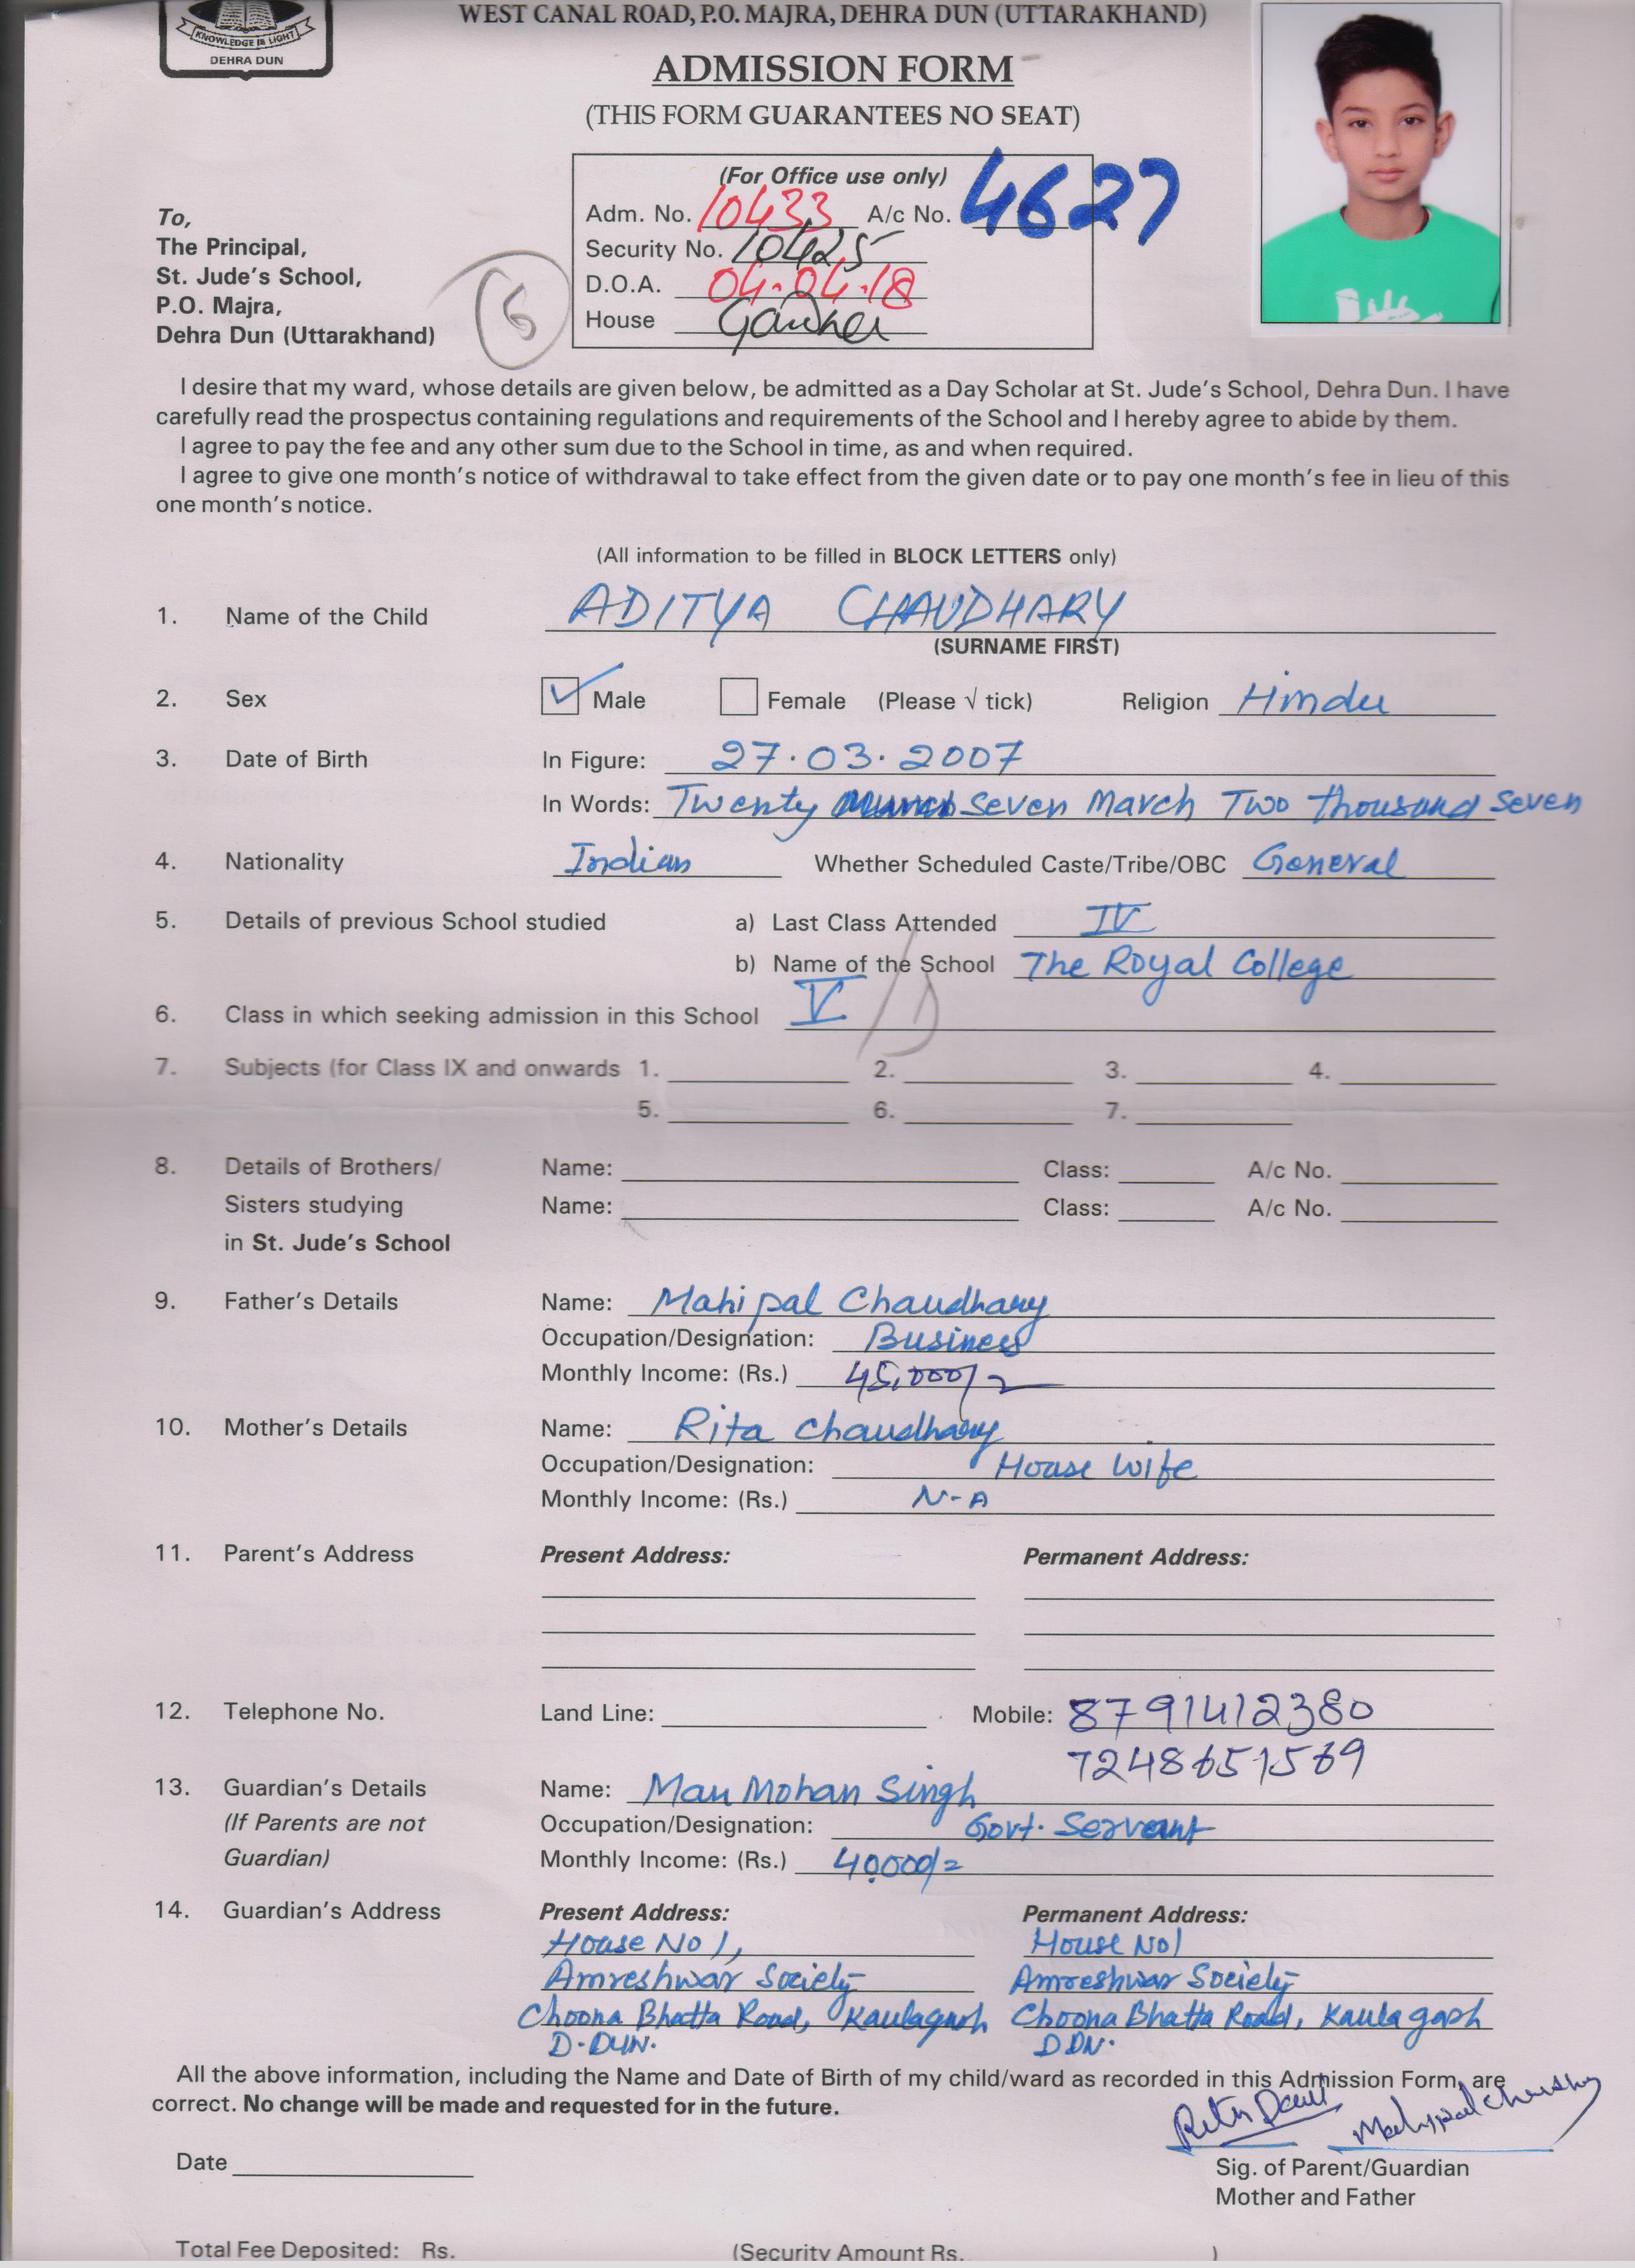 KNOWLEDGE IS LIGHT
DEHRA DUN
WEST CANAL ROAD, P.O. MAJRA, DEHRA DUN (UTTARAKHAND)
ADMISSION FORM
(THIS FORM GUARANTEES NO SEAT)
(For Office use only)
Adm. No. 10433 A/c No. 4627
Security No. 10425
D.O.A. 04.04.18
House
6
To,
The Principal,
St. Jude's School,
P.O. Majra,
Dehra Dun (Uttarakhand)
I desire that my ward, whose details are given below, be admitted as a Day Scholar at St. Jude's School, Dehra Dun. I have
carefully read the prospectus containing regulations and requirements of the School and I hereby agree to abide by them.
I agree to pay the fee and any other sum due to the School in time, as and when required.
I agree to give one month's notice of withdrawal to take effect from the given date or to pay one month's fee in lieu of this
one month's notice.
(All information to be filled in BLOCK LETTERS only)
1. Name of the Child ADITYA CHAUDHARY
(SURNAME FIRST)
2. Sex Male Female (Please √ tick) Religion Hindu
3. Date of Birth In Figure: 27.03.2007
In Words: Twenty Seven March Two thousand Seven
4. Nationality Indian Whether Scheduled Caste/Tribe/OBC General
5. Details of previous School studied a) Last Class Attended IV
b) Name of the School The Royal College
6. Class in which seeking admission in this School V / D
7. Subjects (for Class IX and onwards 1. 2. 3. 4.
5. 6. 7.
8. Details of Brothers/ Name: Class: A/c No.
Sisters studying Name: Class: A/c No.
in St. Jude's School
9. Father's Details Name: Mahipal Chaudhary
Occupation/Designation: Business
Monthly Income: (Rs.) 45,000/-
10. Mother's Details Name: Rita Chaudhary
Occupation/Designation: House Wife
Monthly Income: (Rs.) N-A
11. Parent's Address Present Address: Permanent Address:
12. Telephone No. Land Line: Mobile: 8791412380
7248651569
13. Guardian's Details Name: Man Mohan Singh
(If Parents are not Occupation/Designation: Govt. Servant
Guardian) Monthly Income: (Rs.) 40,000/=
14. Guardian's Address Present Address: Permanent Address:
House No 1, House No 1
Amreshwar Society Amreshwar Society
Choona Bhatta Road, Kaulagarh Choona Bhatta Road, Kaulagarh
D-DUN. DDN.
All the above information, including the Name and Date of Birth of my child/ward as recorded in this Admission Form, are
correct. No change will be made and requested for in the future.
Date
Sig. of Parent/Guardian
Mother and Father
Total Fee Deposited: Rs. (Security Amount Rs. )